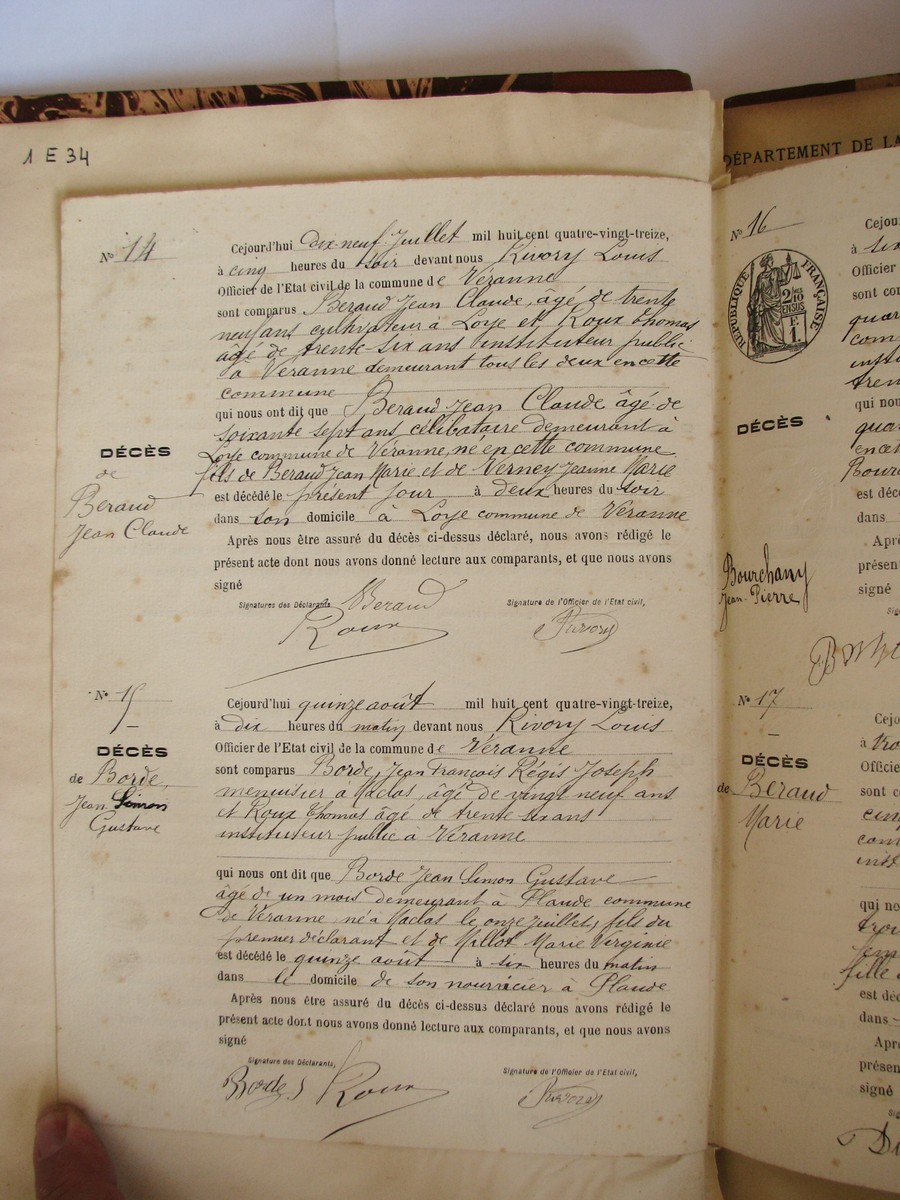 1 E 34
DÉPARTEMENT DE LA
No 14
Cejourd'hui dix-neuf Juillet mil huit cent quatre-vingt-treize,
à cinq heures du soir devant nous Rivory Louis
Officier de l'Etat civil de la commune de Véranne
sont comparus Beraud Jean Claude, âgé de trente
neuf ans cultivateur à Loye et Roux Thomas
âgé de trente-six ans instituteur public
à Véranne demeurant tous les deux en cette
commune
qui nous ont dit que Beraud Jean Claude âgé de
soixante sept ans célibataire demeurant à
Loye commune de Véranne, né en cette commune
fils de Beraud Jean Marie et de Verney Jeanne Marie
est décédé le présent jour à deux heures du soir
dans son domicile à Loye commune de Véranne
Après nous être assuré du décès ci-dessus déclaré, nous avons rédigé le
présent acte dont nous avons donné lecture aux comparants, et que nous avons
signé
DÉCÈS
de
Beraud
Jean Claude
Signatures des Déclarants Beraud
Signature de l'Officier de l'Etat civil,
Roux
Rivory
No 15
DÉCÈS
de Borde,
Jean Simon
Gustave
Cejourd'hui quinze août mil huit cent quatre-vingt-treize,
à dix heures du matin devant nous Rivory Louis
Officier de l'Etat civil de la commune de Véranne
sont comparus Borde, Jean François Régis Joseph
menuisier à Maclas, âgé de vingt neuf ans
et Roux Thomas âgé de trente six ans
instituteur public à Véranne
qui nous ont dit que Borde Jean Simon Gustave
âgé de un mois demeurant à Slaude commune
de Véranne, né à Maclas le onze juillet, fils du
premier déclarant et de Millot Marie Virginie
est décédé le quinze août à six heures du matin
dans le domicile de son nourricier à Slaude
Après nous être assuré du décès ci-dessus déclaré nous avons rédigé le
présent acte dont nous avons donné lecture aux comparants, et que nous avons
signé
Signature des Déclarants,
Signature de l'Officier de l'Etat civil,
Borde J Roux
Rivory
No 16
RÉPUBLIQUE FRANÇAISE
2/10
EN SUS
F.
1.
Cejou
à six
Officier
sont com
quar
com
instit
tren
qui nou
DÉCÈS
quar
en cet
Bour
est déc
dans
Apr
présen
signé
Bourchany
Jean-Pierre
No 17
DÉCÈS
de Beraud
Marie
Cejo
à tro
Officie
sont c
cinq
com
inst
qui no
troi
fem
fille
est déc
dans
Apr
présen
signé